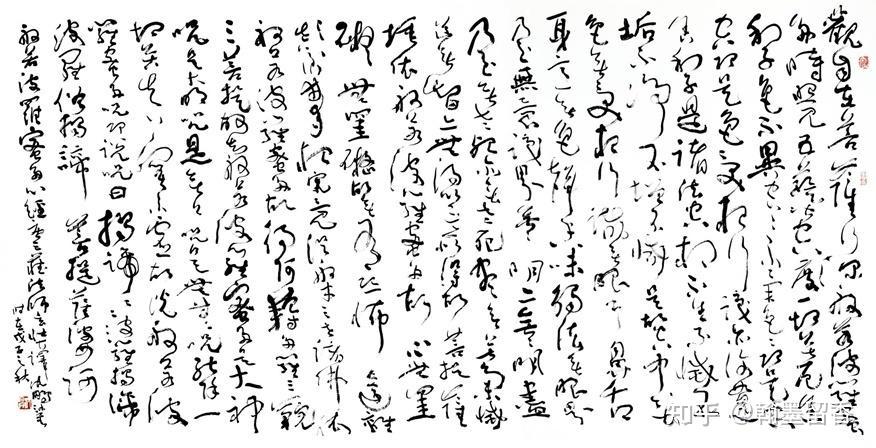 觀自在菩薩行深般若波羅蜜
多時照見五蘊皆空度一切苦厄舍
利子色不異空空不異色色即是空
空即是色受想行識亦復如是
舍利子是諸法空相不生不滅不
垢不淨不增不減是故空中無
色無受想行識無眼耳鼻舌
身意無色聲香味觸法無眼界
乃至無意識界無無明亦無無明盡
乃至無老死亦無老死盡無苦集滅
道無智亦無得以無所得故菩提薩
埵依般若波羅蜜多故心無罣
礙無罣礙故無有恐怖遠離
顛倒夢想究竟涅槃三世諸佛依
般若波羅蜜多故得阿耨多羅三藐
三菩提故知般若波羅蜜多是大神
呪是大明呪是無上呪是無等等呪能除一
切苦真實不虛故說般若波
羅蜜多呪即說呪曰揭諦揭諦波羅揭諦
波羅僧揭諦菩提薩婆訶
般若波羅蜜多心經唐三藏法師玄奘譯
知乎 @翰墨留香